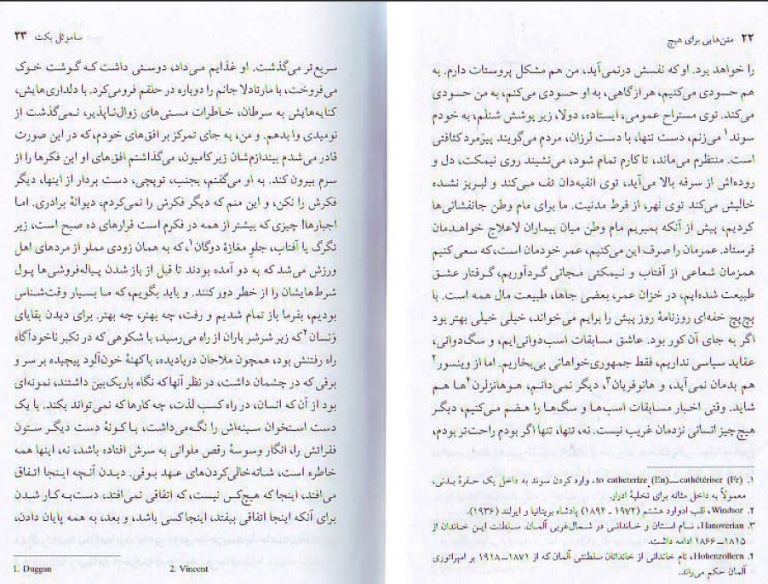 ۲۲ متن‌هایی برای هیچ
را خواهد برد. او که نفسش درنمی‌آید، من هم مشکل پروستات دارم. به
هم حسودی می‌کنیم، هر ازگاهی، به او حسودی می‌کنم، به من حسودی
می‌کند. توی مستراح عمومی، ایستاده، دولا، زیر پوشش شنلم، به خودم
سوند۱ می‌زنم، دست تنها، با دست لرزان، مردم می‌گویند پیرمرد کثافتی
است. منتظرم می‌ماند، تا کارم تمام شود، می‌نشیند روی نیمکت، دل و
روده‌اش از سرفه بالا می‌آید، توی انفیه‌دان تف می‌کند و لبریز نشده
خالیش می‌کند توی نهر، از فرط مدنیت. ما برای مام وطن جانفشانی‌ها
کردیم، پیش از آنکه بمیریم مام وطن میان بیماران لاعلاج خواهدمان
فرستاد. عمرمان را صرف این می‌کنیم، عمر خودمان است، که سعی کنیم
همزمان شعاعی از آفتاب و نیمکتی مجانی گردآوریم، گرفتار عشق
طبیعت شده‌ایم، در خزان عمر، بعضی جاها، طبیعت مال همه است. با
پچ‌پچ خفه‌ای روزنامهٔ روز پیش را برایم می‌خواند، خیلی خیلی بهتر بود
اگر به جای آن کور بود. عاشق مسابقات اسب‌دوانی‌ایم، و سگ‌دوانی،
عقاید سیاسی نداریم، فقط جمهوری‌خواهانی بی‌بخاریم. اما از وینسور۲
هم بدمان نمی‌آید، و هانوفریان۳، دیگر نمی‌دانم، هوهانزلرن۴ها هم
شاید. وقتی اخبار مسابقات اسب‌ها و سگ‌ها را هضم می‌کنیم، دیگر
هیچ چیز انسانی نزدمان غریب نیست. نه، تنها، تنها اگر بودم راحت‌تر بودم،
۱. cathétériser (Fr)—to catheterize (En)، وارد کردن سوند به داخل یک حفرهٔ بدنی،
معمولاً به داخل مثانه برای تخلیهٔ ادرار.
۲. Windsor، لقب ادوارد هشتم (۱۹۷۲ - ۱۸۹۴) پادشاه بریتانیا و ایرلند (۱۹۳۶).
۳. Hanoverian، نام استان و خاندانی در شمال‌غربی آلمان. سلطنت این خاندان از
۱۸۱۵-۱۸۶۶ ادامه داشت.
۴. Hohenzollern، نام خاندانی از خاندانان سلطنتی آلمان که از ۱۸۷۱-۱۹۱۸ بر امپراتوری
آلمان حکم می‌راند.
ساموئل بکت ۲۳
سریع‌تر می‌گذشت. او غذایم می‌داد، دوستی داشت که گوشت خوک
می‌فروخت، با مارتادلا جانم را دوباره در حلقم فرومی‌کرد. با دلداری‌هایش،
کنایه‌هایش به سرطان، خاطرات مستی‌های زوال‌ناپذیر، نمی‌گذشت از
نومیدی وابدهم. و من، به جای تمرکز بر افق‌های خودم، که در این صورت
قادر می‌شدم بیندازم‌شان زیر کامیون، می‌گذاشتم افق‌های او این فکرها را از
سرم بیرون کند. به او می‌گفتم، بجنب، توپچی، دست بردار از اینها، دیگر
فکرش را نکن، و این منم که دیگر فکرش را نمی‌کردم، دیوانهٔ برادری. اما
اجبارها! چیزی که بیشتر از همه در فکرم است قرارهای ده صبح است، زیر
تگرگ یا آفتاب، جلو مغازهٔ دوگان۱، که به همان زودی مملو از مردهای اهل
ورزش می‌شد که به دو آمده بودند تا قبل از باز شدن پیاله‌فروشی‌ها پول
شرط‌هایشان را از خطر دور کنند. و باید بگویم، که ما بسیار وقت‌شناس
بودیم، بفرما باز تمام شدیم و رفت، چه بهتر، چه بهتر. برای دیدن بقایای
ونسان۲ که زیر شرشر باران از راه می‌رسید، با شکوهی که در تکبر ناخودآگاه
راه رفتنش بود، همچون ملاحان دریادیده، با کهنهٔ خون‌آلود پیچیده بر سر و
برقی که در چشمان داشت، در نظر آنها که نگاه باریک‌بین داشتند، نمونه‌ای
بود از آن که انسان، در راه کسب لذت، چه کارها که نمی‌تواند بکند. با یک
دست استخوان سینه‌اش را نگه می‌داشت، با کونهٔ دست دیگر ستون
فقراتش را، انگار وسوسهٔ رقص ملوانی به سرش افتاده باشد، نه، اینها همه
خاطره است، شانه‌خالی‌کردن‌های عهد بوقی. دیدن آنچه اینجا اتفاق
می‌افتد، اینجا که هیچ‌کس نیست، که اتفاقی نمی‌افتد، دست‌به‌کار شدن
برای آنکه اینجا اتفاقی بیفتد، اینجا کسی باشد، و بعد، به همه پایان دادن،
1. Duggan 2. Vincent